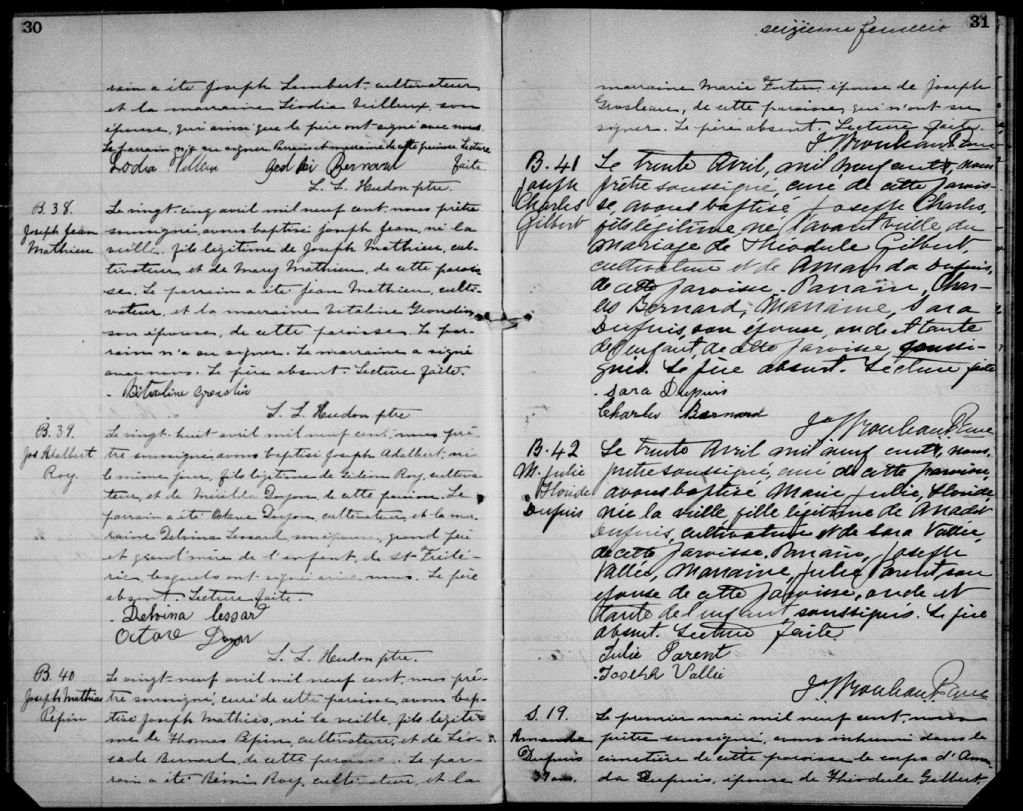 30
rain a été Joseph Lambert, cultivateur
et la marraine Léodia Veilleux, son
épouse, qui ainsi que le père ont signé avec nous.
Le parrain n'a su signer. Parrain et marraine de cette paroisse. Lecture
faite.
Bernard
L. L. Hudon ptre.
B. 38.
Joseph Jean
Mathieu
Le vingt-cinq avril mil neuf cent, nous prêtre
soussigné, avons baptisé Joseph Jean, né la
veille, fils légitime de Joseph Mathieu, cul-
tivateur, et de Mary Mathieu, de cette parois
se. Le parrain a été Jean Mathieu, culti-
vateur, et la marraine Vitaline Grondin
son épouse, de cette paroisse. Le par-
rain n'a su signer. La marraine a signé
avec nous. Le père absent. Lecture faite.
L. L. Hudon ptre
B. 39.
Jos Adalbert
Roy.
Le vingt-huit avril mil neuf cent, nous prê-
tre soussigné, avons baptisé Joseph Adelbert, né
le même jour, fils légitime de Gédéon Roy, cultiva-
teur, et de de cette paroisse. Le
parrain a été Octave cultivateur, et la mar
raine Delvina Lessard son épouse, grand père
et grand'mère de l'enfant, de St Frédé-
ric, lesquels ont signé avec nous. Le père
absent. Lecture faite.
Delvina lessard
Octave
L. L. Hudon ptre.
B. 40
Joseph Mathias
Pépin
Le vingt-neuf avril mil neuf cent, nous prê-
tre soussigné, curé de cette paroisse, avons bap-
tisé Joseph Mathias, né la veille, fils légiti-
me de Thomas Pépin, cultivateur, et de Léo-
cadie Bernard, de cette paroisse. Le par-
rain a été Rémi Roy, cultivateur, et la
31
seizième feuillet
marraine Marie Fortin, épouse de Joseph
Grosleau, de cette paroisse, qui n'ont su
signer. Le père absent. Lecture faite.
B. 41
Joseph
Charles
Gilbert
Le trente Avril, mil neuf cent, nous
prêtre soussigné, curé de cette parois-
se, avons baptisé Joseph Charles,
fils légitime, né l'avant veille, du
mariage de Théodule Gilbert
cultivateur et de Amanda Dupuis,
de cette paroisse. Parrain, Char-
les Bernard, Marraine, Sara
Dupuis, son épouse, oncle et tante
de l'enfant, de cette paroisse soussi-
gnés. Le père absent. Lecture faite
Sara Dupuis
Charles Bernard
B. 42
M. Julie
Floride
Dupuis
Le trente Avril mil neuf cent, nous,
prêtre soussigné, curé de cette paroisse,
avons baptisé Marie Julie, Floride,
née la veille fille légitime de
Dupuis, cultivateur et de Sara Vallée
de cette paroisse. Parrain, Joseph
Vallée, Marraine, Julie Parent, son
épouse de cette paroisse, oncle et
tante de l'enfant soussignés. Le père
absent. Lecture faite
Julie Parent
Joseph Vallée
S. 19.
Amanda
Dupuis
37 ans.
Le premier mai mil neuf cent, nous
prêtre soussigné, avons inhumé dans le
cimetière de cette paroisse le corps d'Aman
da Dupuis, épouse de Théodule Gilbert,